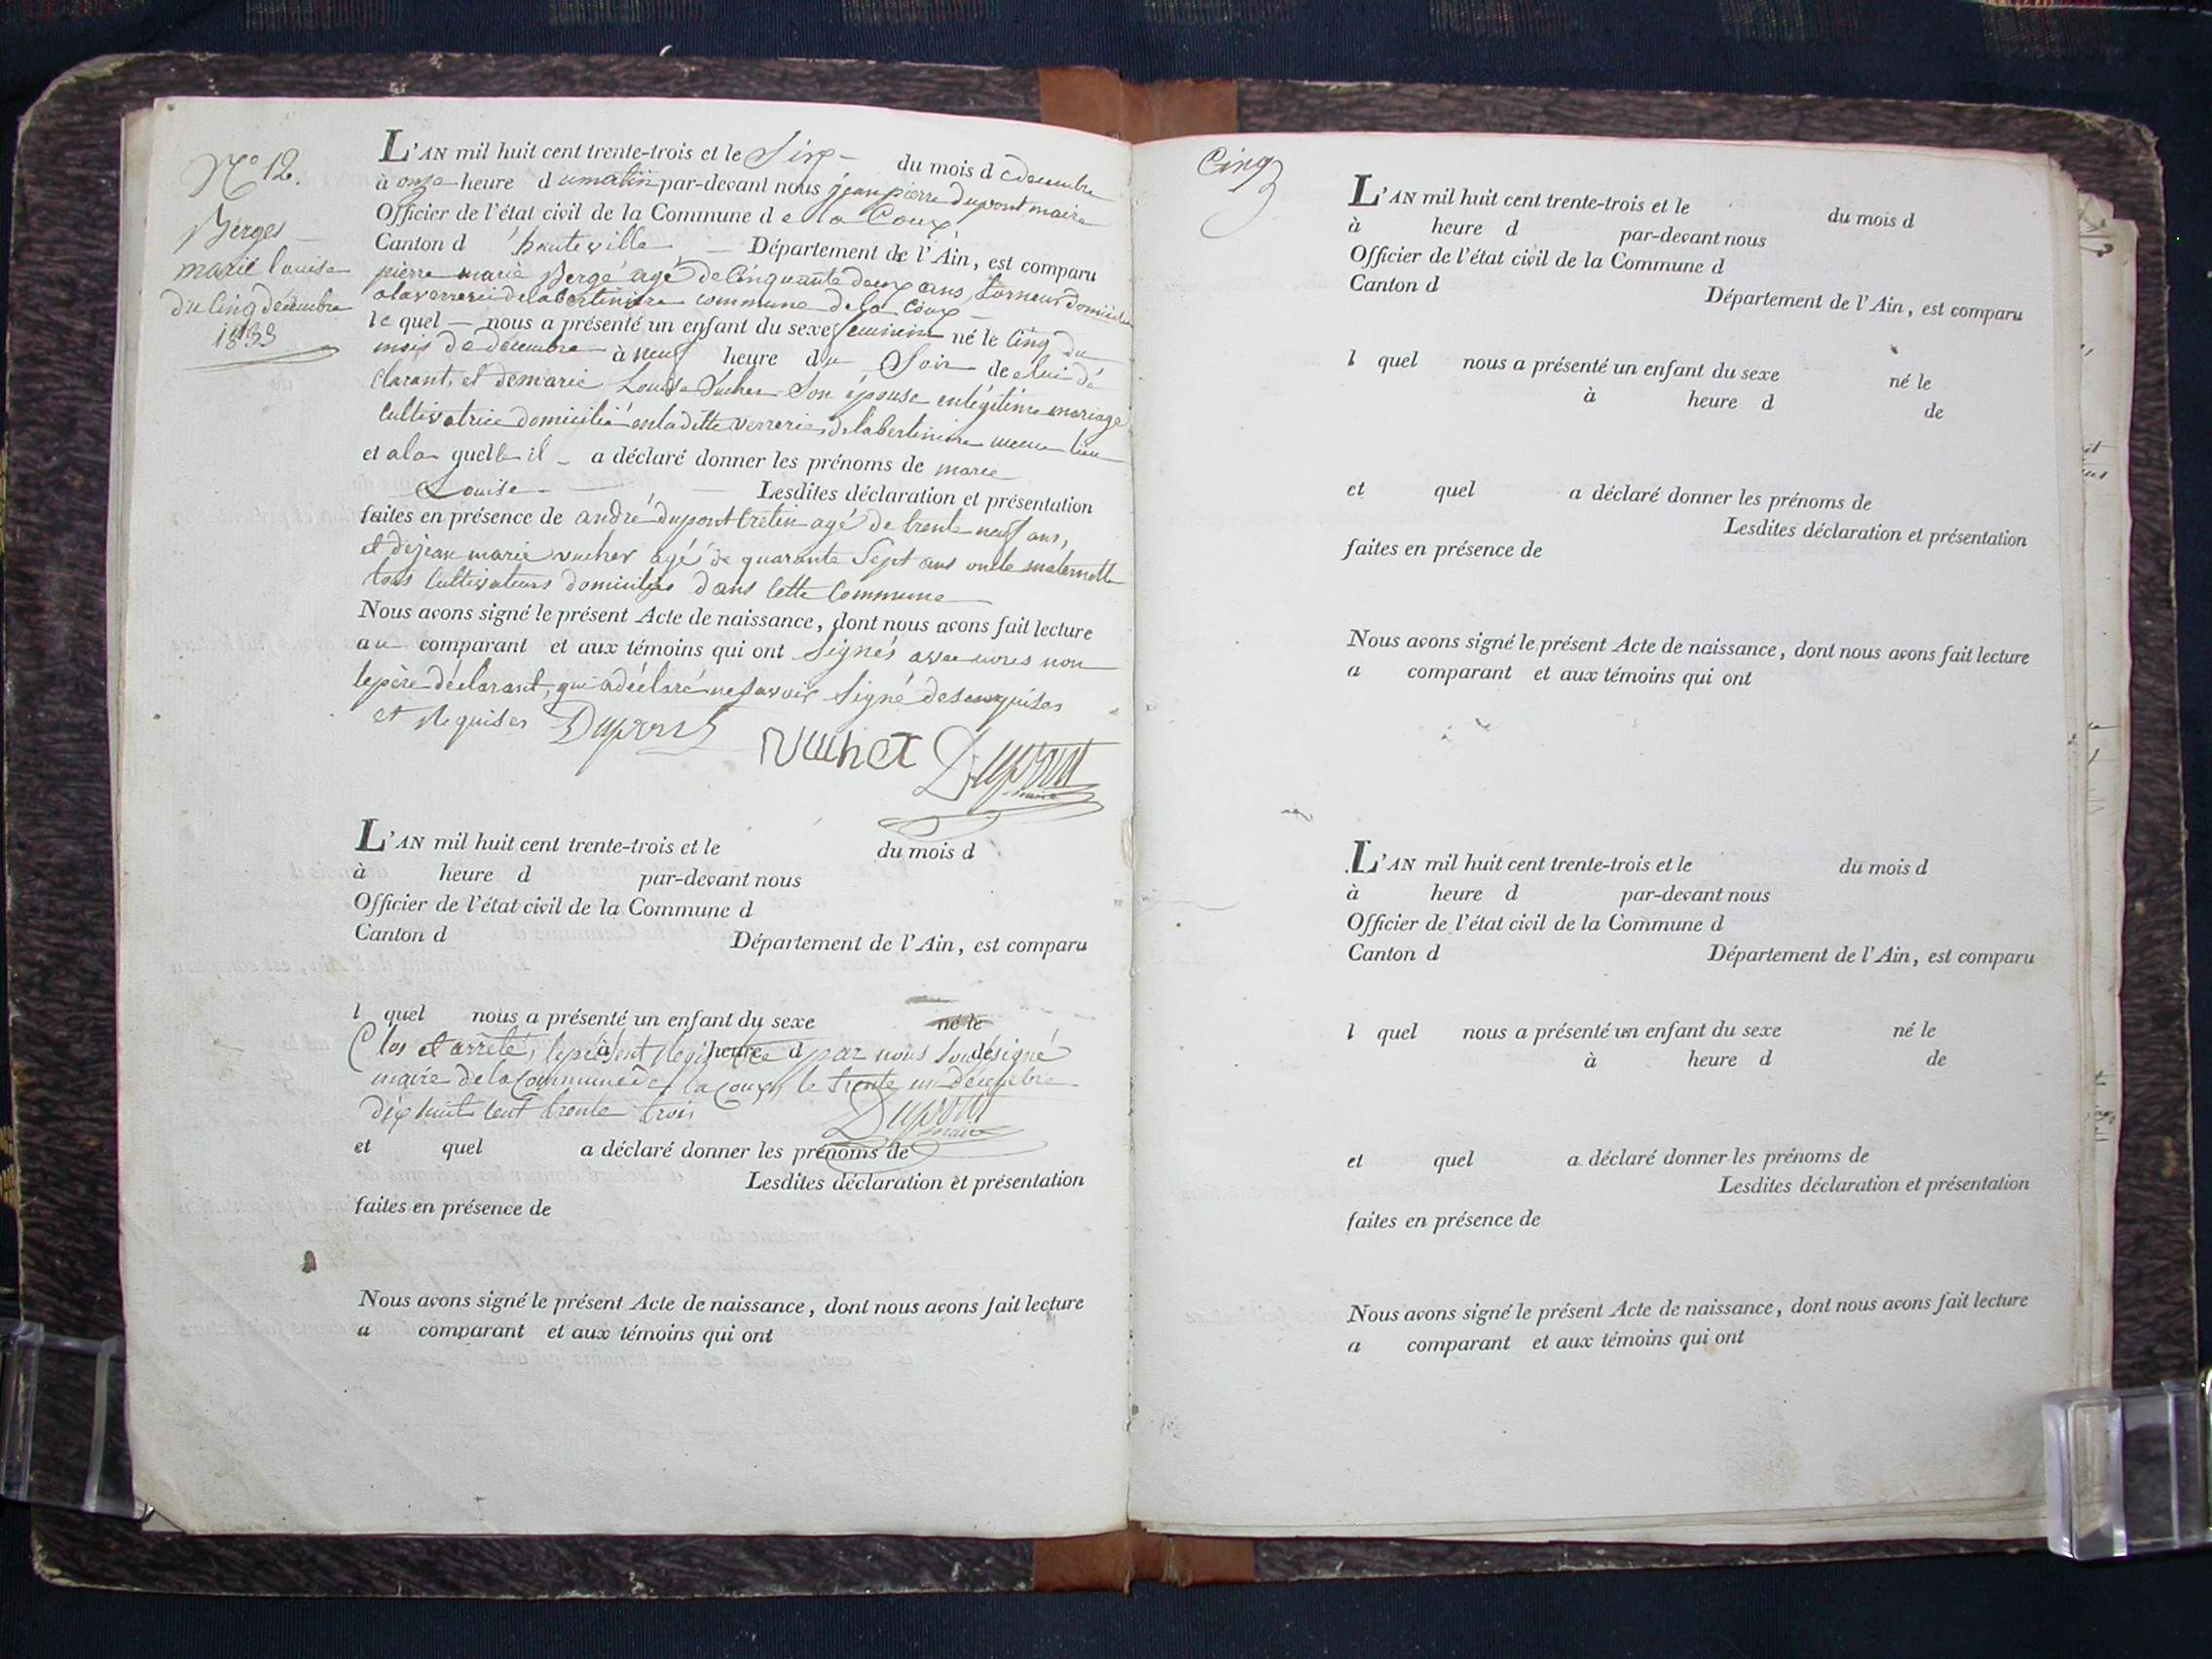 N.° 12.
Berger
marie louise
du Cinq decembre
1833
L'AN mil huit cent trente-trois et le Sixe du mois d e decembre
à onze heure d u matin par-devant nous jean pierre dupont maire
Officier de l'état civil de la Commune d e la Coux
Canton d 'hauteville Département de l'Ain, est comparu
pierre marie Berge agé de Cinquante deux ans, torneur
a la verrerie de commune de la Coux
le quel nous a présenté un enfant du sexe feminin né le Cinq du
mois de decembre à neuf heure du Soir de lui dé
clarant, et de marie Louise Vucher Son épouse en légitime mariage
Cultivatrice domicilié en la ditte verrerie, meme lieu
et a la quelle il a déclaré donner les prénoms de marie
Louise Lesdites déclaration et présentation
faites en présence de andré dupont Cretin agé de trente neuf ans,
et de jean marie vucher agé de quarante Sept ans oncle maternelle
tous Cultivateurs domiciliés dans Cette Commune
Nous avons signé le présent Acte de naissance, dont nous avons fait lecture
au comparant et aux témoins qui ont Signés avec non
le père déclarant, qui a déclaré ne Savoir Signé de
et Requises Dupont Vucher Dupont
maire
L'AN mil huit cent trente-trois et le du mois d
à heure d par-devant nous
Officier de l'état civil de la Commune d
Canton d Département de l'Ain, est comparu
l quel nous a présenté un enfant du sexe né le
à heure d de
Clos et arrêté, le présent Registre par nous Soussigné
maire de la Commune de la Coux, le trente un Décembre
dix huit Cent trente trois Dupont
maire
et quel a déclaré donner les prénoms de
Lesdites déclaration et présentation
faites en présence de
Nous avons signé le présent Acte de naissance, dont nous avons fait lecture
a comparant et aux témoins qui ont
Cinq
L'AN mil huit cent trente-trois et le du mois d
à heure d par-devant nous
Officier de l'état civil de la Commune d
Canton d Département de l'Ain, est comparu
l quel nous a présenté un enfant du sexe né le
à heure d de
et quel a déclaré donner les prénoms de
Lesdites déclaration et présentation
faites en présence de
Nous avons signé le présent Acte de naissance, dont nous avons fait lecture
a comparant et aux témoins qui ont
L'AN mil huit cent trente-trois et le du mois d
à heure d par-devant nous
Officier de l'état civil de la Commune d
Canton d Département de l'Ain, est comparu
l quel nous a présenté un enfant du sexe né le
à heure d de
et quel a déclaré donner les prénoms de
Lesdites déclaration et présentation
faites en présence de
Nous avons signé le présent Acte de naissance, dont nous avons fait lecture
a comparant et aux témoins qui ont